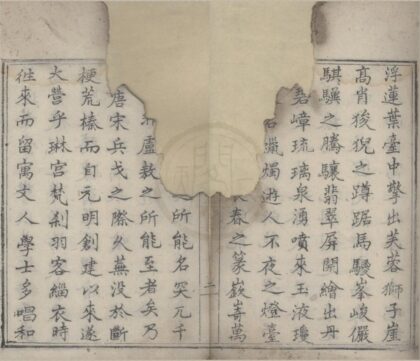 浮蓮葉臺中擎出芙蓉獅子崖
高肖狻猊之蹲踞馬騣峯峻儼
騏驥之騰驤翡翠屏開繪出丹
嶂琉璃泉湧噴來玉液瓊
石蠟燭遊人不夜之燈臺
秦之篆嶔嵜萬
二
所能名突兀千
盧敖之所能至者矣乃
唐宋兵戈之際久蕪没於斷
梗荒榛而自元明創建以來遂
大營乎琳宫梵刹羽客緇衣時
徃來而留寓文人學士多唱和